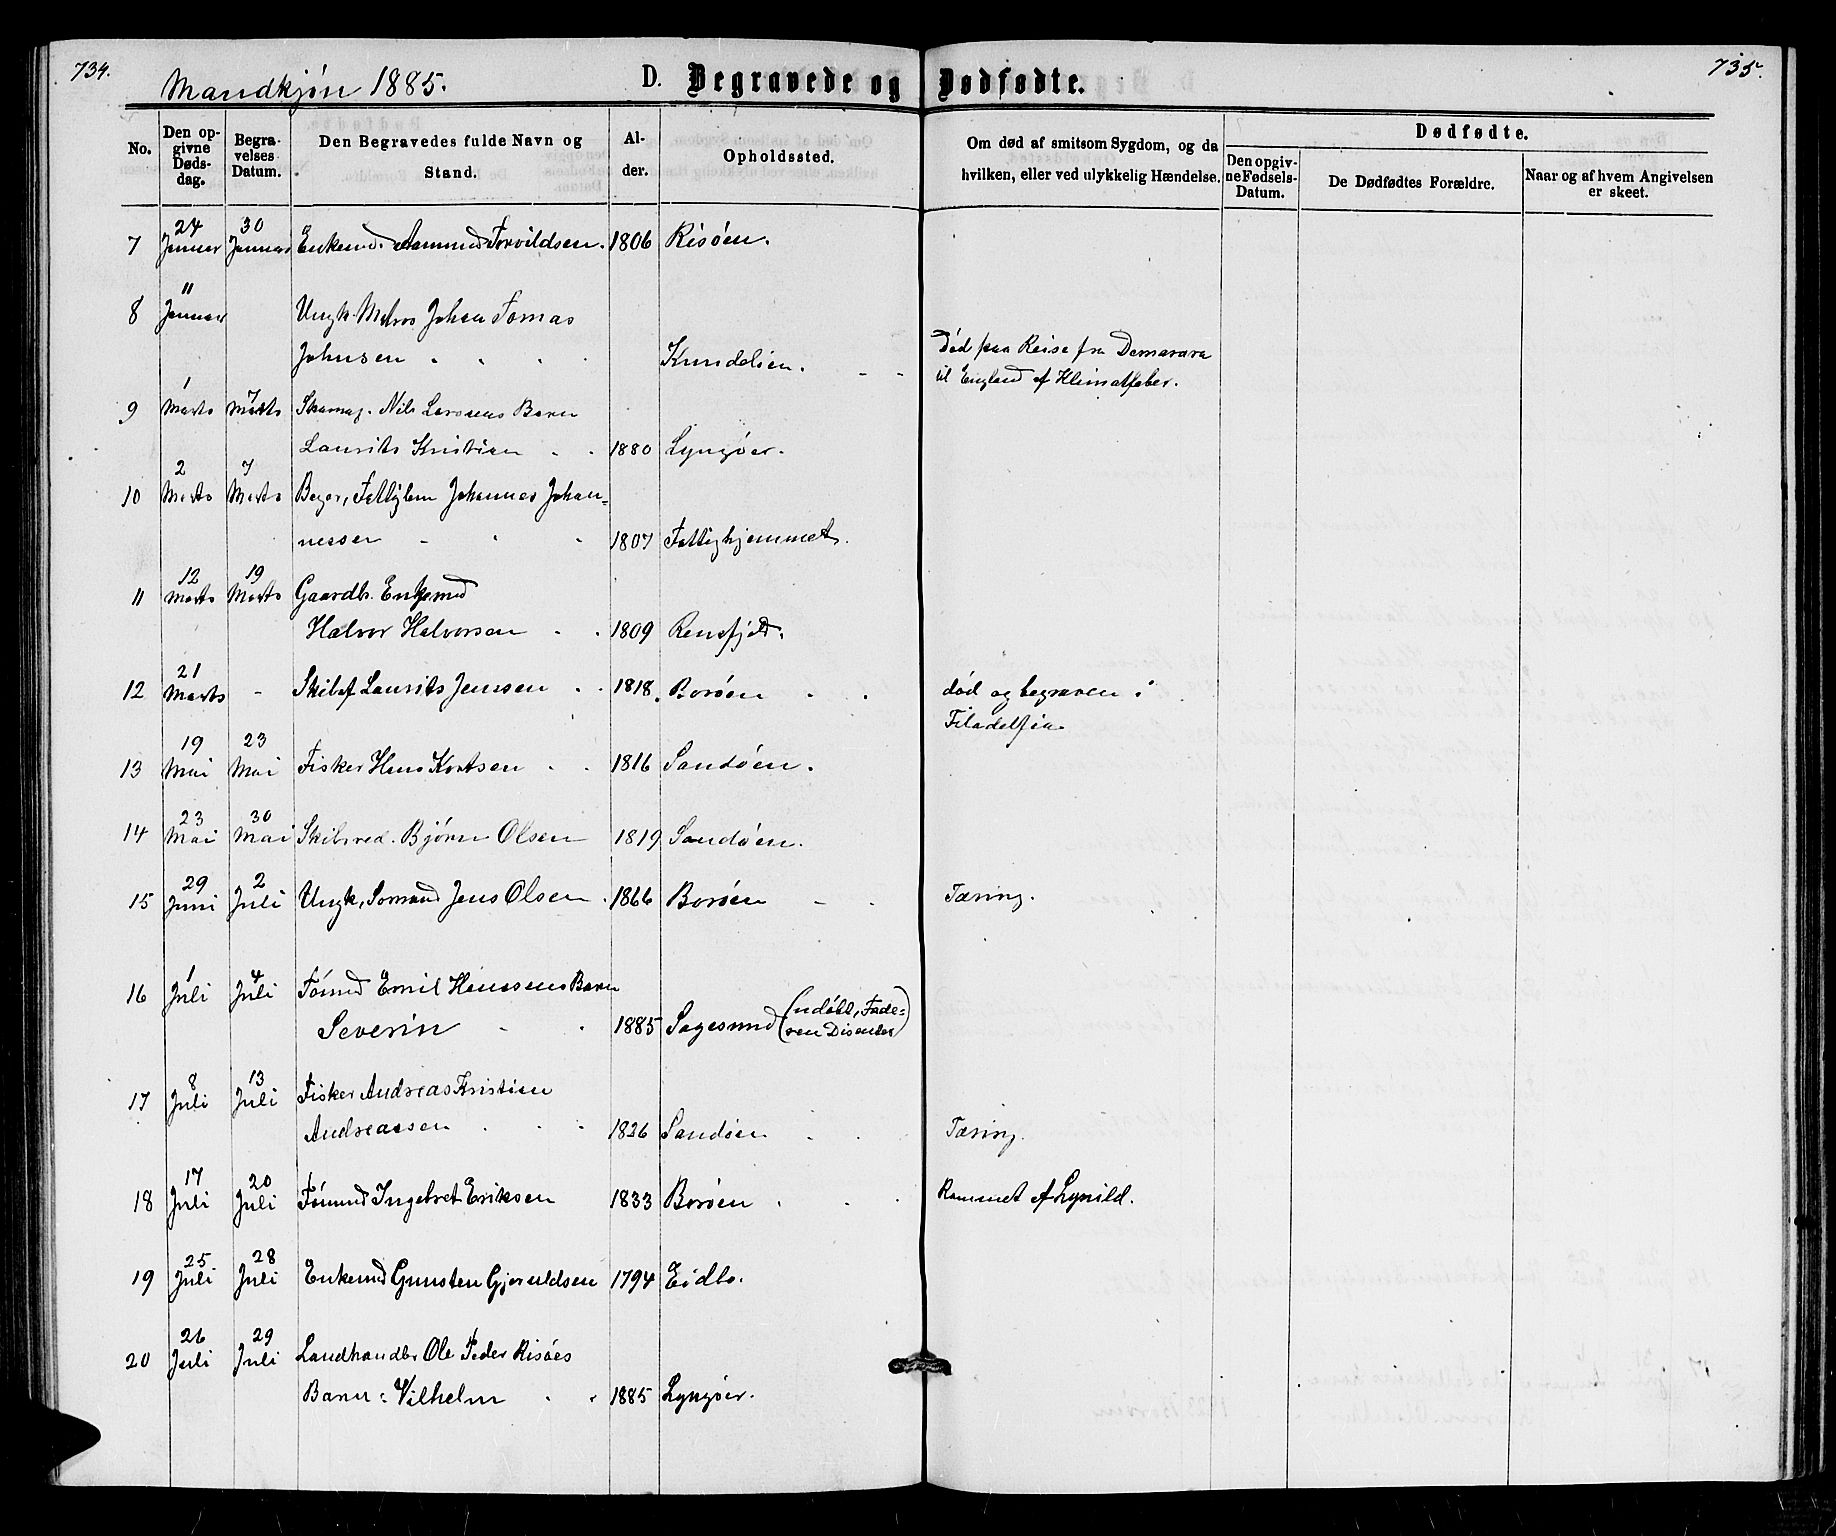 734.
Mandkjön 1885.
D. Begravede og Dødfødte.
735.
No.
Den opgivne Dødsdag.
Begravelses Datum.
Den Begravedes fulde Navn og Stand.
Alder.
Opholdssted.
Om død af smitsom Sygdom, og da hvilken, eller ved ulykkelig Hændelse.
Dødfødte.
Den opgivne Fødsels-Datum.
De Dødfødtes Forældre.
Naar og af hvem Angivelsen er skeet.
7 24 Januar 30 Januar Enkemd. Aamund Torvildsen. 1806 Risöen.
8 11 Januar Ungk. Matros Johan Tomas
Johnsen Død paa Reise fra Demarara
til England af Klimatfeber.
9 1 Marts 7 Marts Nils Larssens Barn
Laurits Kristian 1880 Lyngöer.
10 2 Marts 7 Marts Johannes Johan=
nessen 1807 Fattighjemmet.
11 12 Marts 19 Marts Gaardbr. Enkemd
Halvor Halvorsen 1809
12 21 Marts - Skibsf Laurits Jensen 1818. Boröen død og begraven i
Filadelfia
13 19 Mai 23 Mai Fisker Hans Kortsen 1816 Sandöen.
14 23 Mai 30 Mai Skibsred. Björn Olsen 1819 Sandöen.
15 29 Juni 2 Juli Ungk, Sömand Jens Olsen 1866 Boröen Tæring.
16 1 Juli 4 Juli Tömmd Emil Hanssens Barn
Severin 1885 Sagesund (udöbt, Fade=
ren Disenter)
17 8 Juli 13 Juli Fisker Andreas Kristian
Andreassen 1826 Sandöen Tæring.
18 17 Juli 20 Juli Tömmd Ingebret Eriksen 1833 Boröen Rammet af Lynild.
19 25 Juli 28 Juli Enkemd Gunsten Gjeruldsen 1794 Eidbo.
20 26 Juli 29 Juli Landhandlr Ole Peder Risöes
Barn: Vilhelm 1885 Lyngöer.